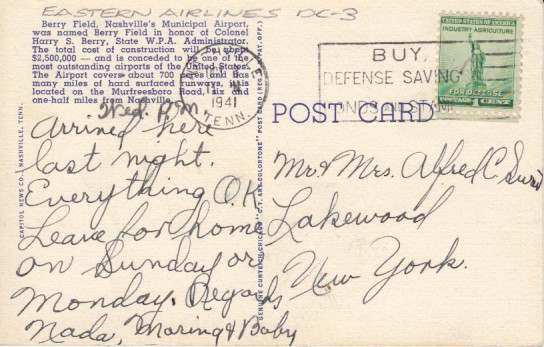 EASTERN AIRLINES DC-3
Berry Field, Nashville's Municipal Airport,
was named Berry Field in honor of Colonel
Harry S. Berry, State W.P.A. Administrator.
The total cost of construction will be about
$2,500,000 — and is conceded to be one of the
most outstanding airports of the United States.
The Airport covers about 700 acres and has
many miles of hard surfaced runways. It is
located on the Murfreesboro Road, six and
one-half miles from Nashville.
Wed. P.M
Arrived here
last night.
Everything O.K
Leave for home
on Sunday or
Monday. Regards
Nada, &  Baby
CAPITOL NEWS CO., NASHVILLE, TENN.
GENUINE CURTEICH-CHICAGO "C.T. ART-COLORTONE" POST CARD (REG. U.S. PAT. OFF.)
1941
TENN.
BUY
DEFENSE SAVING
BONDS AND STAMP
UNITED STATES OF AMERICA
INDUSTRY AGRICULTURE
FOR DEFENSE
POSTAGE 1 CENT
POST CARD
Mr & Mrs. Alfred C.
Lakewood
New York.